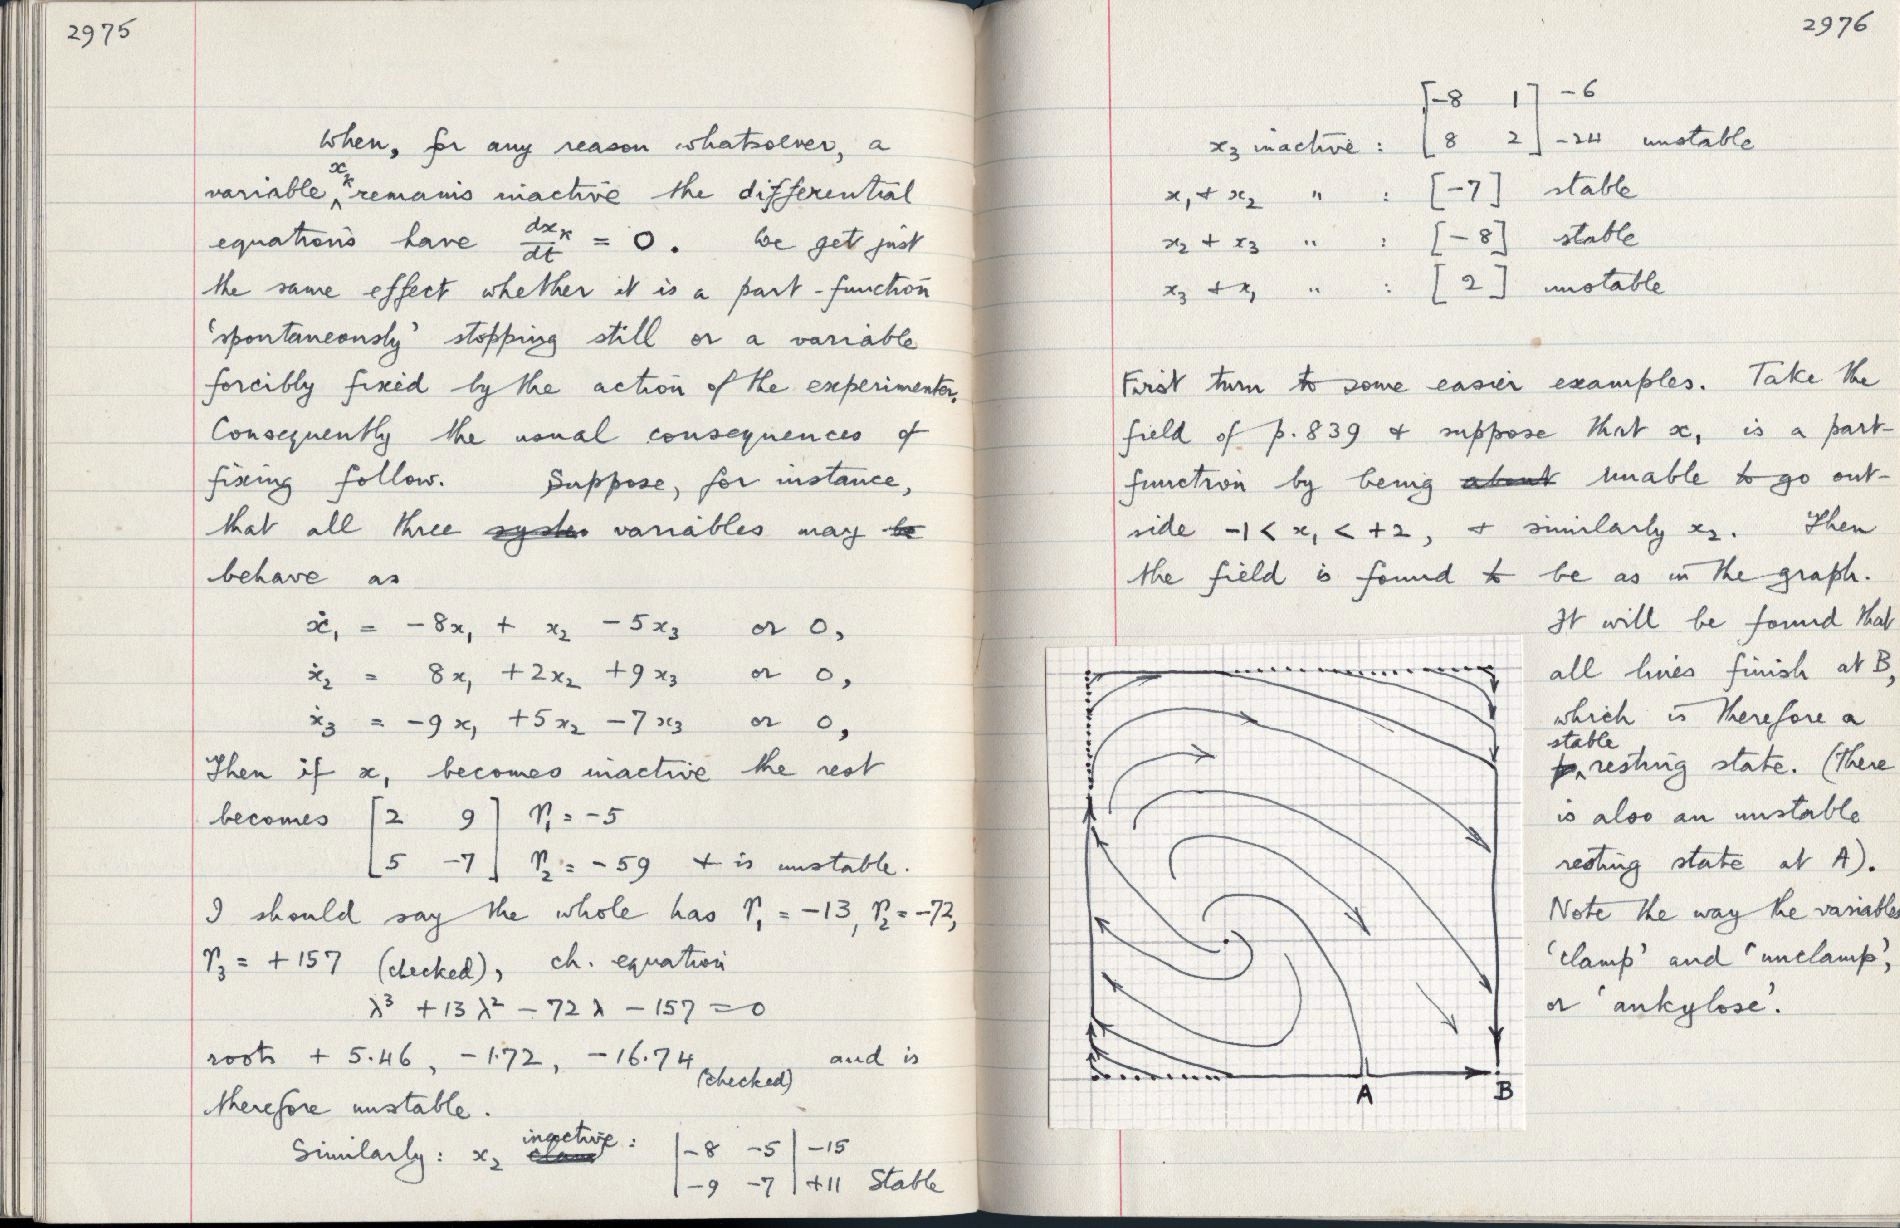 2975
When, for any reason whatsoever, a
variable xₖ remains inactive the differential
equations have dxₖ/dt = 0. We get just
the same effect whether it is a part-function
'spontaneously' stopping still or a variable
forcibly fixed by the action of the experimenter.
Consequently the usual consequences of
fixing follow. Suppose, for instance,
that all three variables may
behave as
ẋ₁ = -8x₁ + x₂ -5x₃ or 0,
ẋ₂ = 8x₁ +2x₂ +9x₃ or 0,
ẋ₃ = -9x₁ +5x₂ -7x₃ or 0,
Then if x₁ becomes inactive the rest
becomes [2 9] r₁ = -5
[5 -7] r₂ = -59 + is unstable.
I should say the whole has r₁ = -13, r₂ = -72,
r₃ = +157 (checked), ch. equation
λ³ + 13λ² - 72λ - 157 = 0
roots + 5.46, -1.72, -16.74 (checked) and is
therefore unstable.
Similarly: x₂ inactive: |-8 -5| -15
|-9 -7| +11 Stable
2976
[-8 1] -6
x₃ inactive: [8 2] -24 unstable
x₁ + x₂ " : [-7] stable
x₂ + x₃ " : [-8] stable
x₃ + x₁ " : [2] unstable
First turn to some easier examples. Take the
field of p. 839 + suppose that x₁ is a part-
function by being unable to go out-
side -1 < x₁ < +2, + similarly x₂. Then
the field is found to be as in the graph.
It will be found that
all lines finish at B,
which is therefore a
stable resting state. (There
is also an unstable
resting state at A).
Note the way the variables
'clamp' and 'unclamp',
or 'ankylose'.
A
B